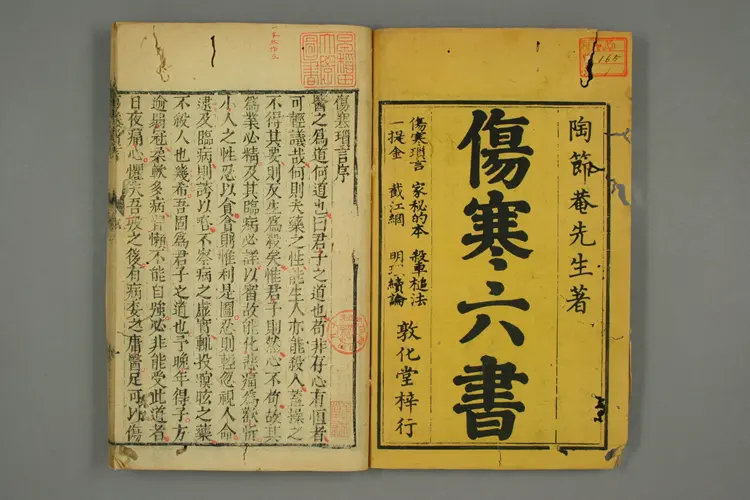 陶節菴先生著
傷寒六書
傷寒瑣言 家秘的本 殺車槌法
一提金 截江網 明理續論
敦化堂梓行
165
傷寒瑣言序
醫之為道何道也曰君子之道也苟非存心有恒者
可輕議哉何則夫藥之性能生人亦能殺人蓋操之
不得其要則反生為殺矣惟君子則然心不苟故其
為業必精及其臨病必詳以審故能化悲痛為歡忻
小人之性忍以貪貪則惟利是圖忍則輕忽視人命
逮及臨病則誇以 不察病之虛實輒投瞑眩之藥
不殺人也幾希吾固為君子之道也予晚年得子方
逾弱冠柔軟多病 懶不能自強必非能受此道者
日夜痛心懼夫吾歿之後有病委之庸醫足可以傷